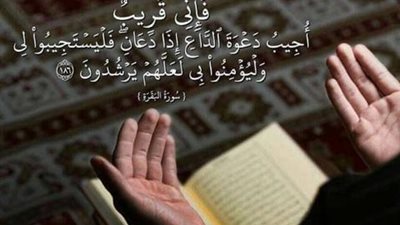 فَإِنِّي قَرِيبٌ
أُجِيبُ دَعْوَةَ ٱلدَّاعِ إِذَا دَعَانِ ۖ فَلْيَسْتَجِيبُوا۟ لِى
وَلْيُؤْمِنُوا۟ بِى لَعَلَّهُمْ يَرْشُدُونَ ﴿١٨٦﴾
{ سُورَةُ البَقَرَةِ }